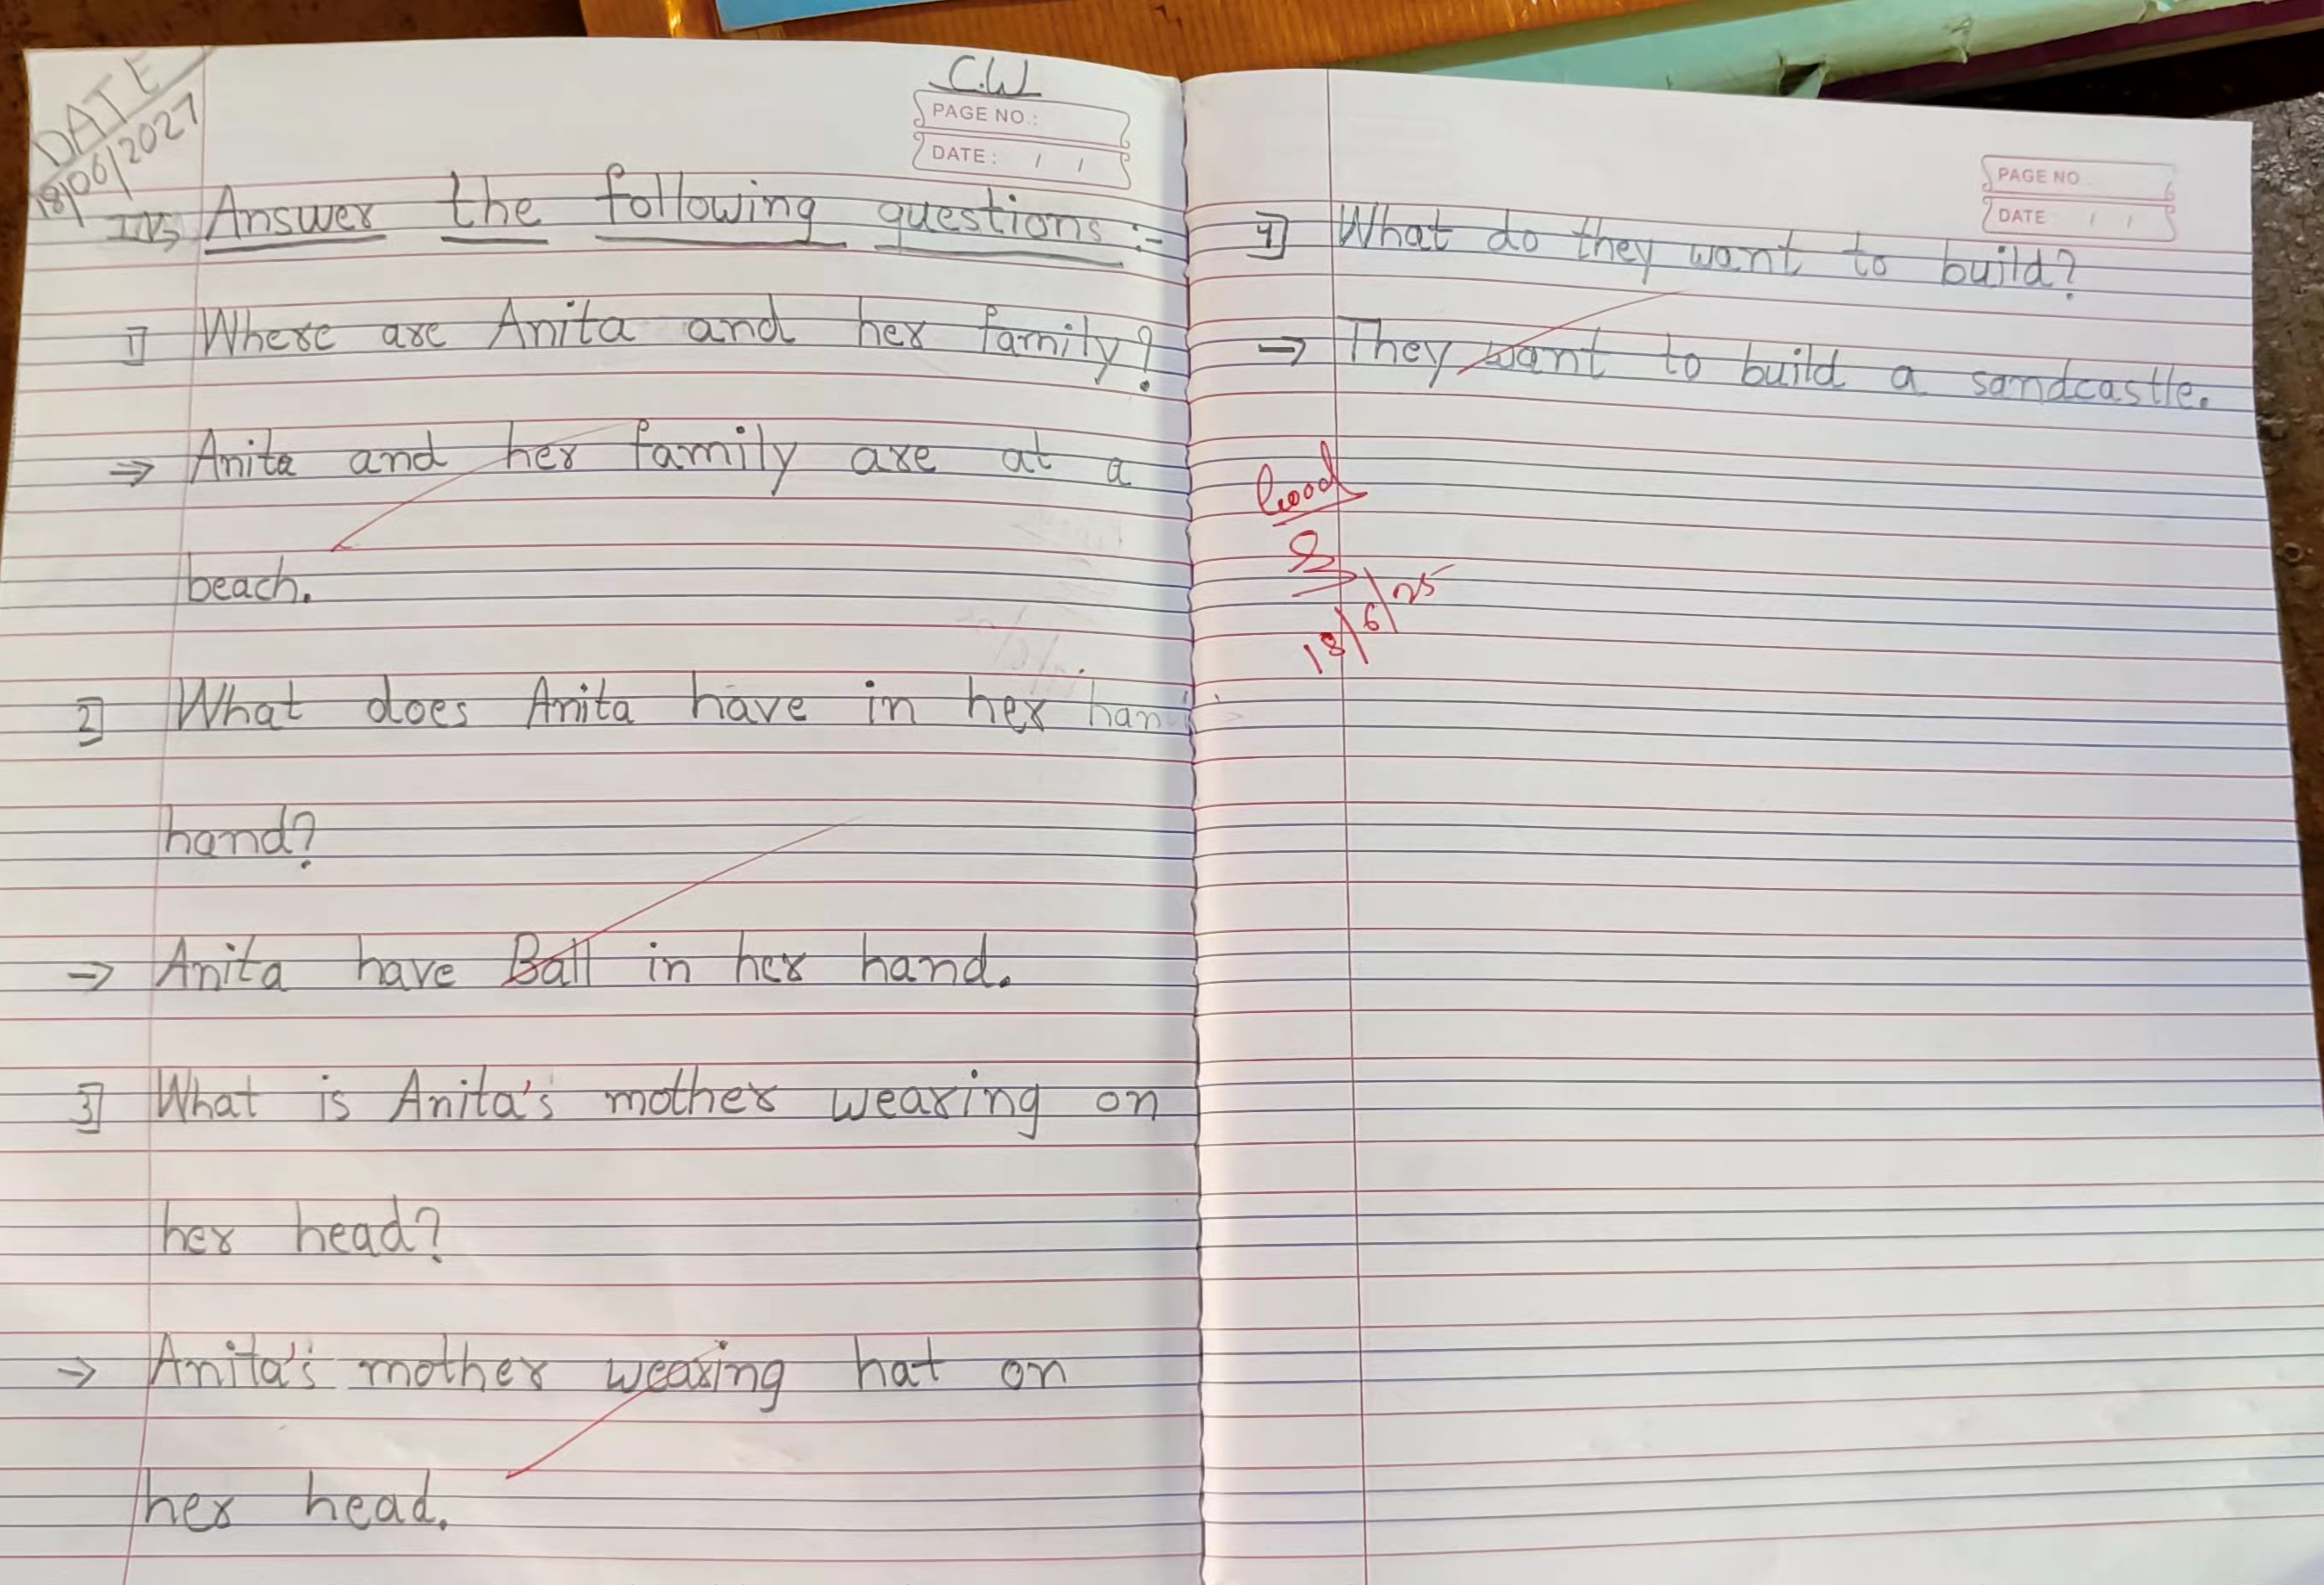 DATE
18/06/2027
C.W
PAGE NO.:
DATE: / /
IV> Answer the following questions :-
1] Where are Anita and her family?
→ Anita and her family are at a
beach.
2] What does Anita have in her han
hand?
→ Anita have Ball in her hand.
3] What is Anita's mother wearing on
her head?
→ Anita's mother wearing hat on
her head.
PAGE NO.
DATE / /
4] What do they want to build?
→ They want to build a sandcastle.
Good
18/6/25